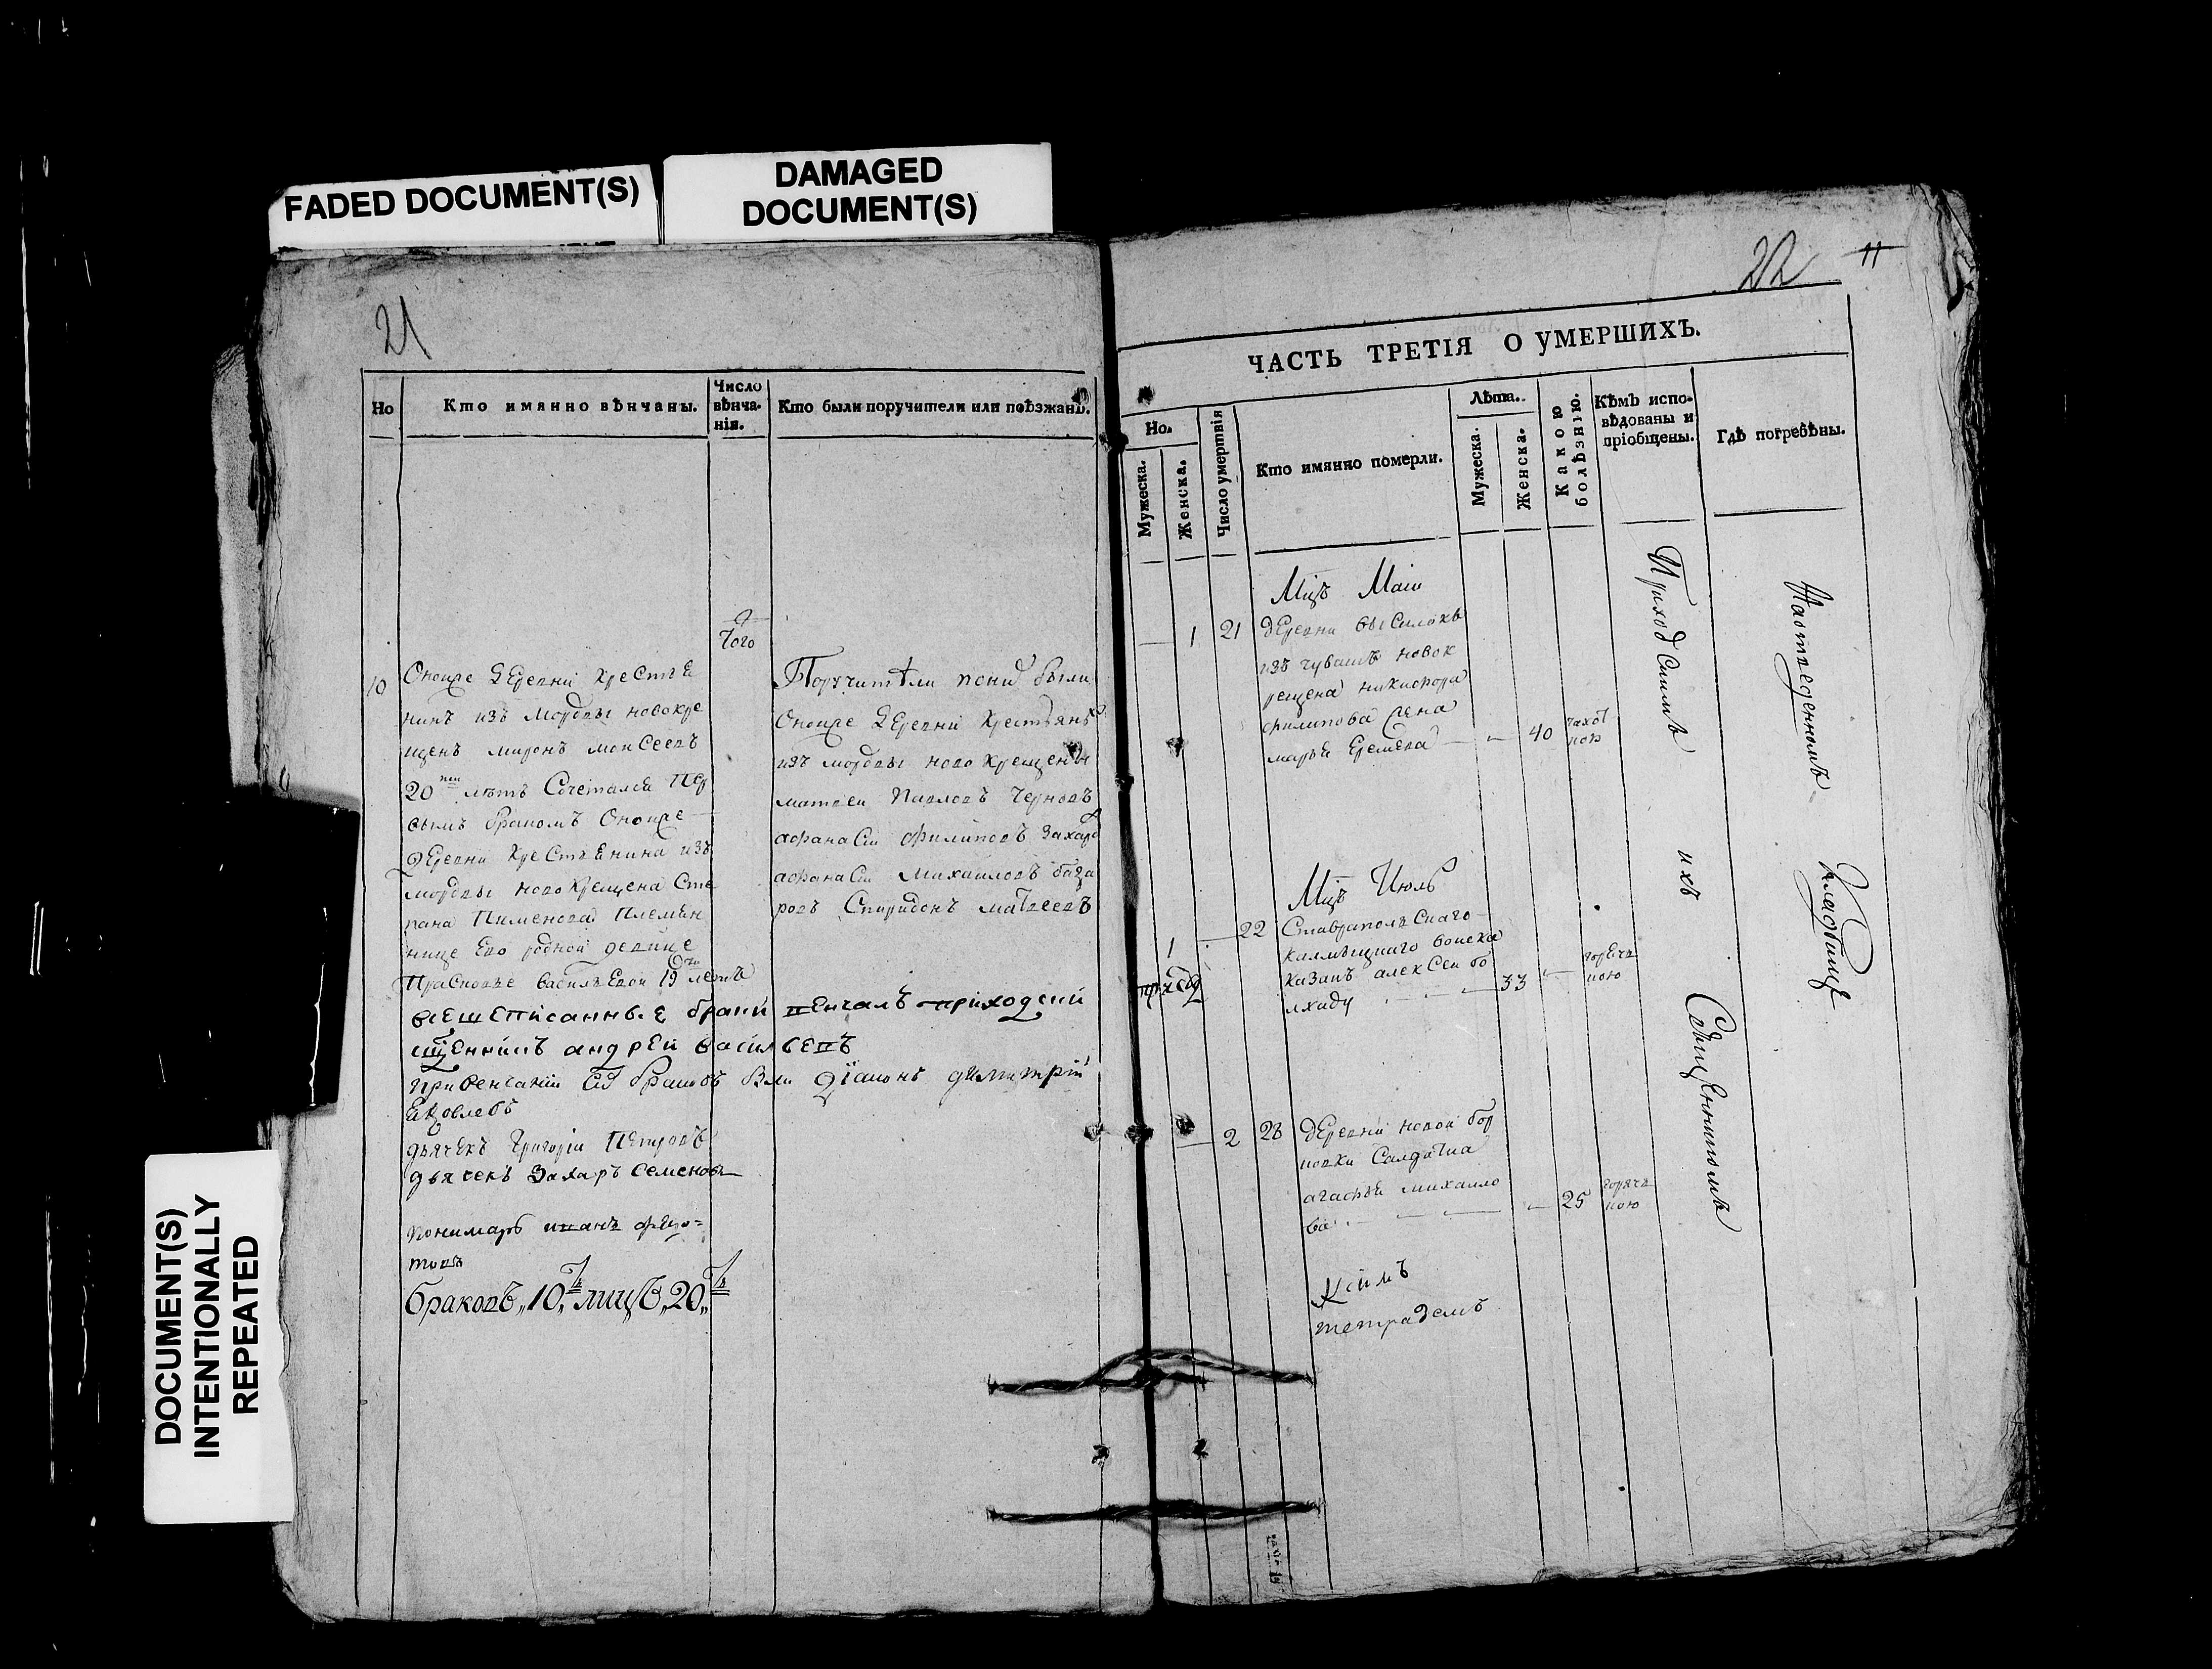 FADED DOCUMENT(S)
DAMAGED
DOCUMENT(S)
DOCUMENT(S)
INTENTIONALLY
REPEATED
21
Но
Кто имянно вѣнчаны.
Число
вѣнча-
нія.
Кто были поручители или поѣзжанѣ.
9
Того
10
Оноиже деревни крестья
нинъ изъ мордвы новокре
щенъ миронъ моисеевъ
20 ти летъ Сочетался пер
вымъ бракомъ Оноиже
деревни крестьянина изъ
мордвы новокрещена Сте
пана Пименова племян
нице Ево родной девице
Прасковье васильевой 19 летъ
Поручители по нид были
Оноиже деревни крестьянѣ
изъ мордвы новокрещены
матвеи Павловъ Черновъ
афанасіи филиповъ Захаро
афанасіи Михаиловъ база
ровъ Спиридонъ матвеевъ
вышеписанные браки венчалъ приходскій
сщенникъ андрей васильевъ
При венчаніи браковъ были діаконъ димитрій
яковлевъ
дьячекъ Григоріи Петровъ
дьячекъ Захаръ Семеновъ
пономарь иванъ федо=
товъ
браковъ „10„ лицъ „20„
22
11
ЧАСТЬ ТРЕТІЯ О УМЕРШИХЪ.
Но.
Мужеска.
Женска.
Число умертвія
Кто имянно померли.
Лѣта.
Мужеска.
Женска.
Какою
болѣзнію.
Кѣмъ испо-
вѣдованы и
пріобщены.
Гдѣ погребѣны.
Мцъ Маіи
1 21 деревни выселокъ
изъ чувашъ новок
рещена никифора
филипова жена
марья Еремева 40
Мцъ Июль
1 22 Ставропольскаго
калмыцкаго воиска
казакъ алексеи бо
лхаду 33 горяч
кою
2 28 деревни новой бор
ковки Салдатка
агафья михаило
ва 25 горяч
кою
Ксимъ
тетрадемъ
Приходскимъ ихъ Священникомъ
На отведенномъ кладбище